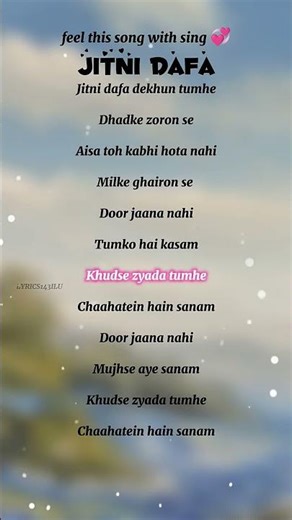 feel this song with sing 💞
JITNI DAFA
Jitni dafa dekhun tumhe
Dhadke zoron se
Aisa toh kabhi hota nahi
Milke ghairon se
Door jaana nahi
Tumko hai kasam
Khudse zyada tumhe
Chaahatein hain sanam
Door jaana nahi
Mujhse aye sanam
Khudse zyada tumhe
Chaahatein hain sanam